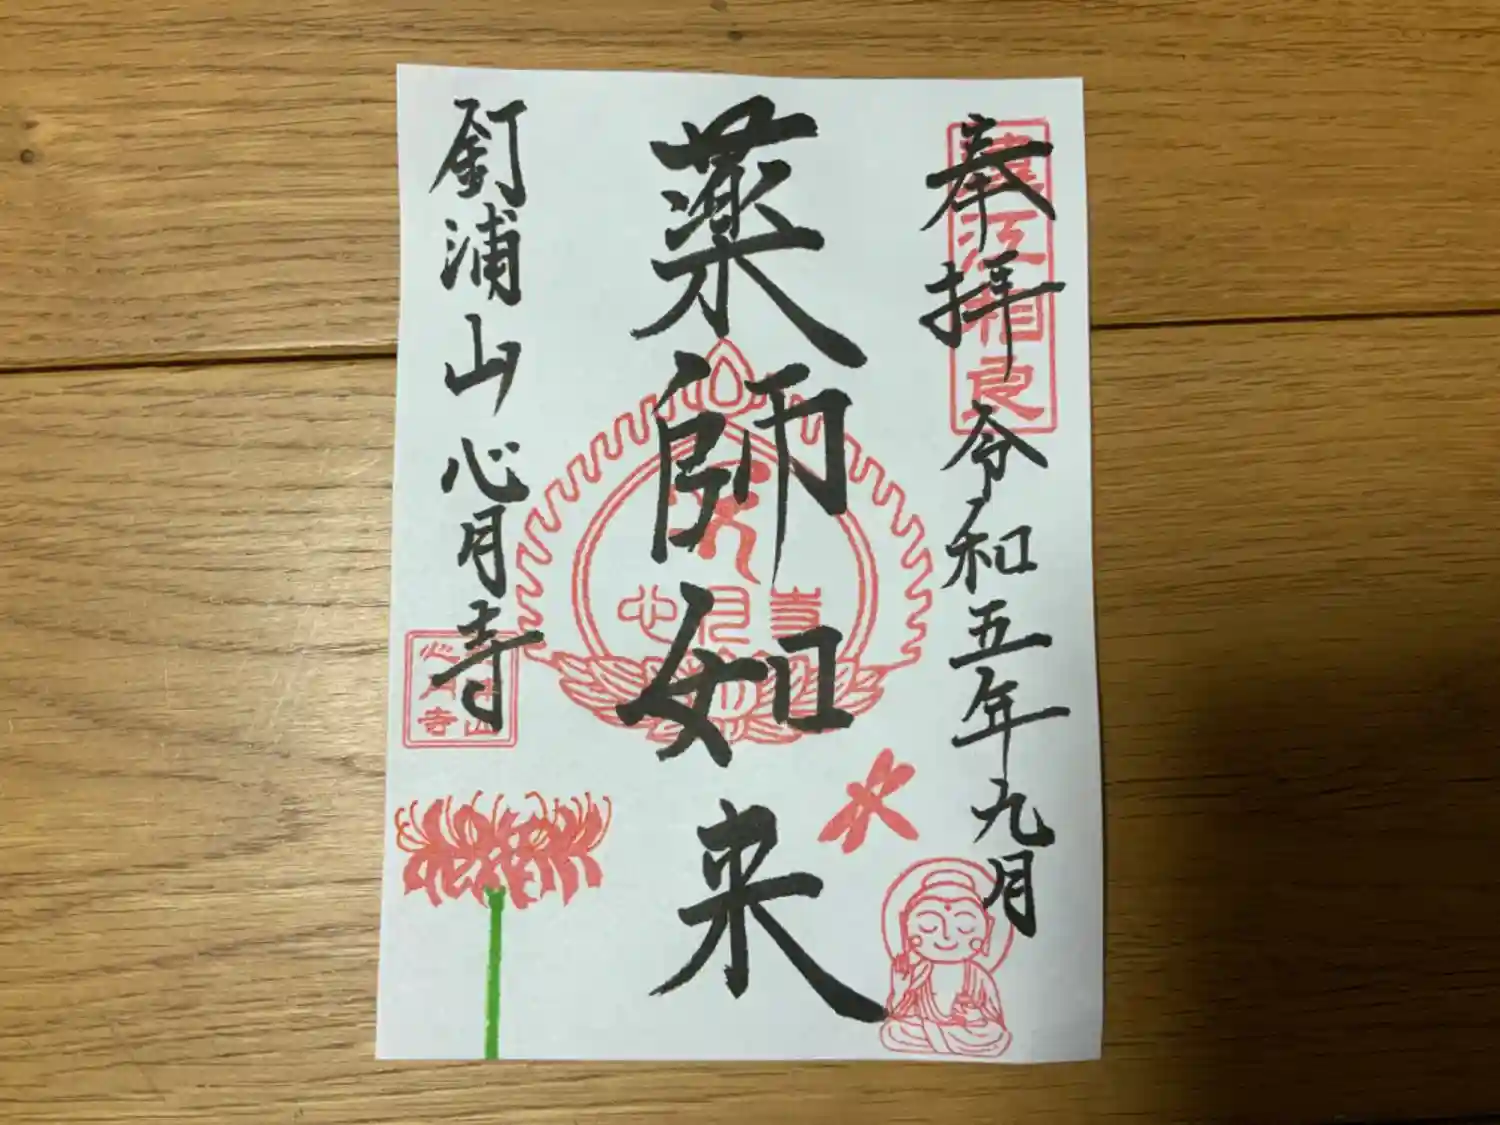 奉拝 令和五年九月
遠江相良
薬師如来
心月寺
釘浦山 心月寺